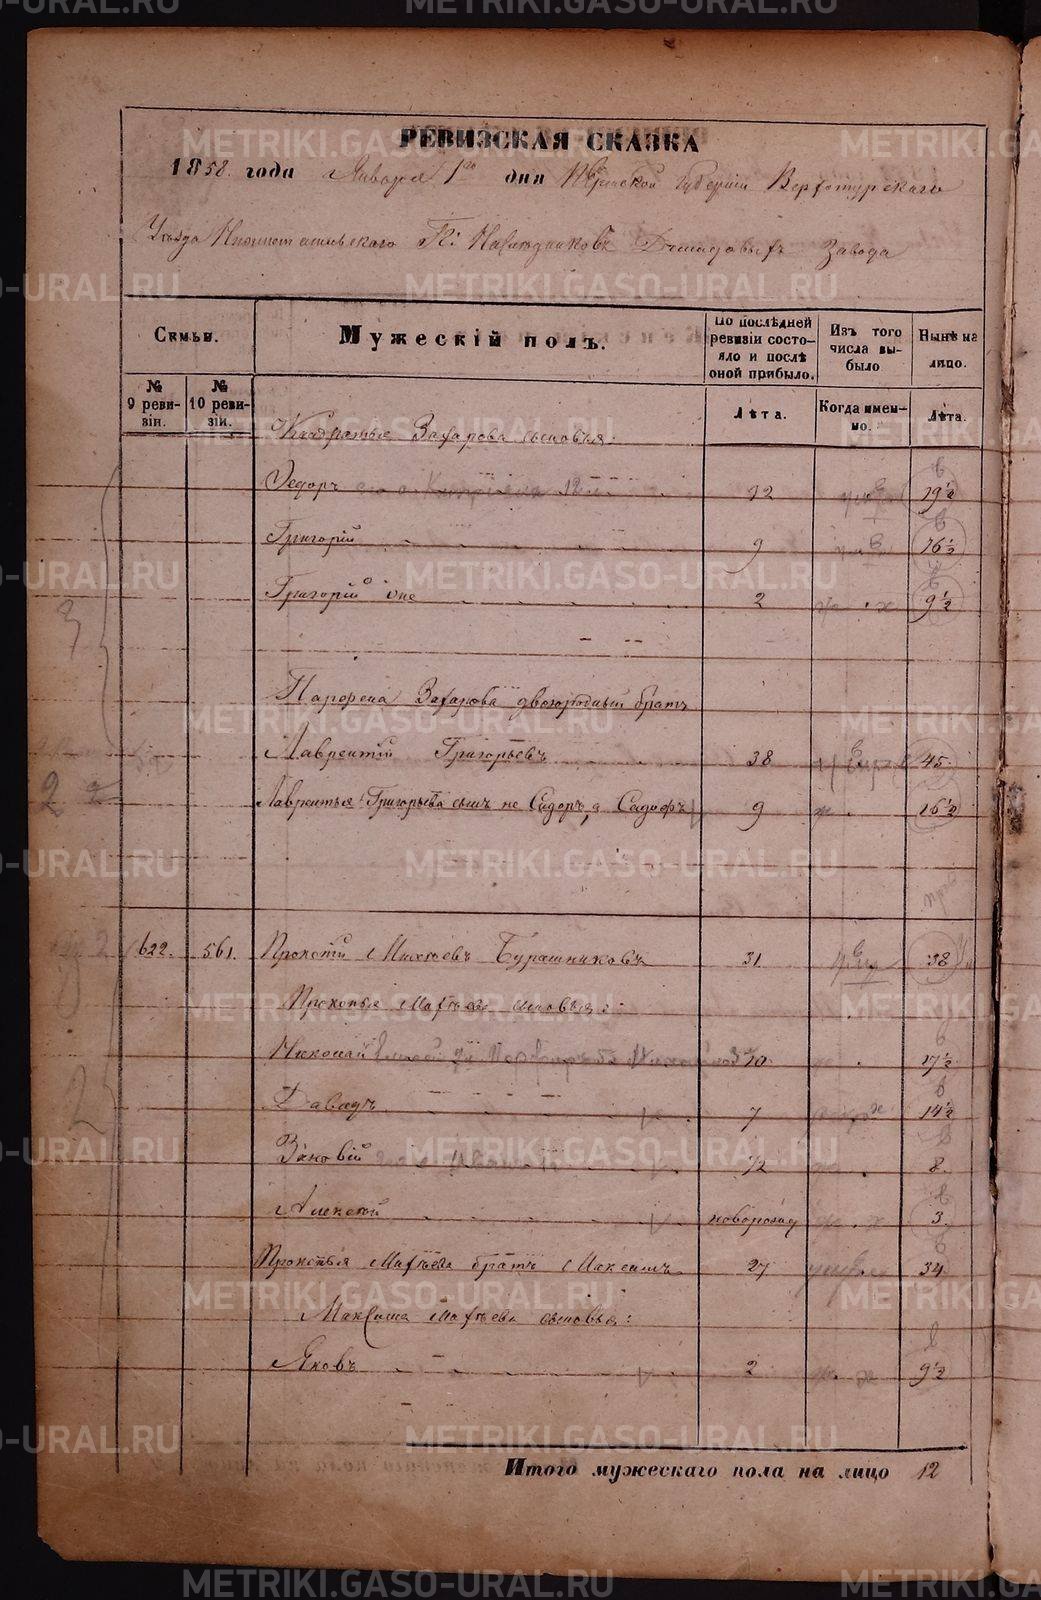 РЕВИЗСКАЯ СКАЗКА
1858 года Января 1го дня Пермской Губернiи Верхотурскаго
Уѣзда Нижнетагильскаго Гг: Наслѣдниковъ Демидовыхъ Завода
Семьи.
Мужескiй полъ.
По послѣдней ревизiи состояло и послѣ оной прибыло.
Изъ того числа выбыло
Нынѣ на лицо.
№ 9 ревизiи.
№ 10 ревизiи.
Лѣта.
Когда именно.
Лѣта.
Кондратья Захарова сыновья:
Ѳедоръ 12 19½
Григорiй 9 16½
Григорiй 2й 2 9½
Парфена Захарова двоюродный братъ
Лаврентiй Григорьевъ 38 45
Лаврентья Григорьева сынъ не Сидоръ, а 9 16½
622. 561. Прокопiй Матвѣевъ Бурашниковъ 31 38
Прокопья Матвѣева сыновья:
Николай 10 17½
Давыдъ 7 14½
½ 8
Алексѣй новорожд 3
Прокопья Матвѣева братъ Максимъ 27 34
Максима Матвѣева сыновья:
Яковъ 2 9½
Итого мужескаго пола на лицо 12
METRIKI.GASO-URAL.RU